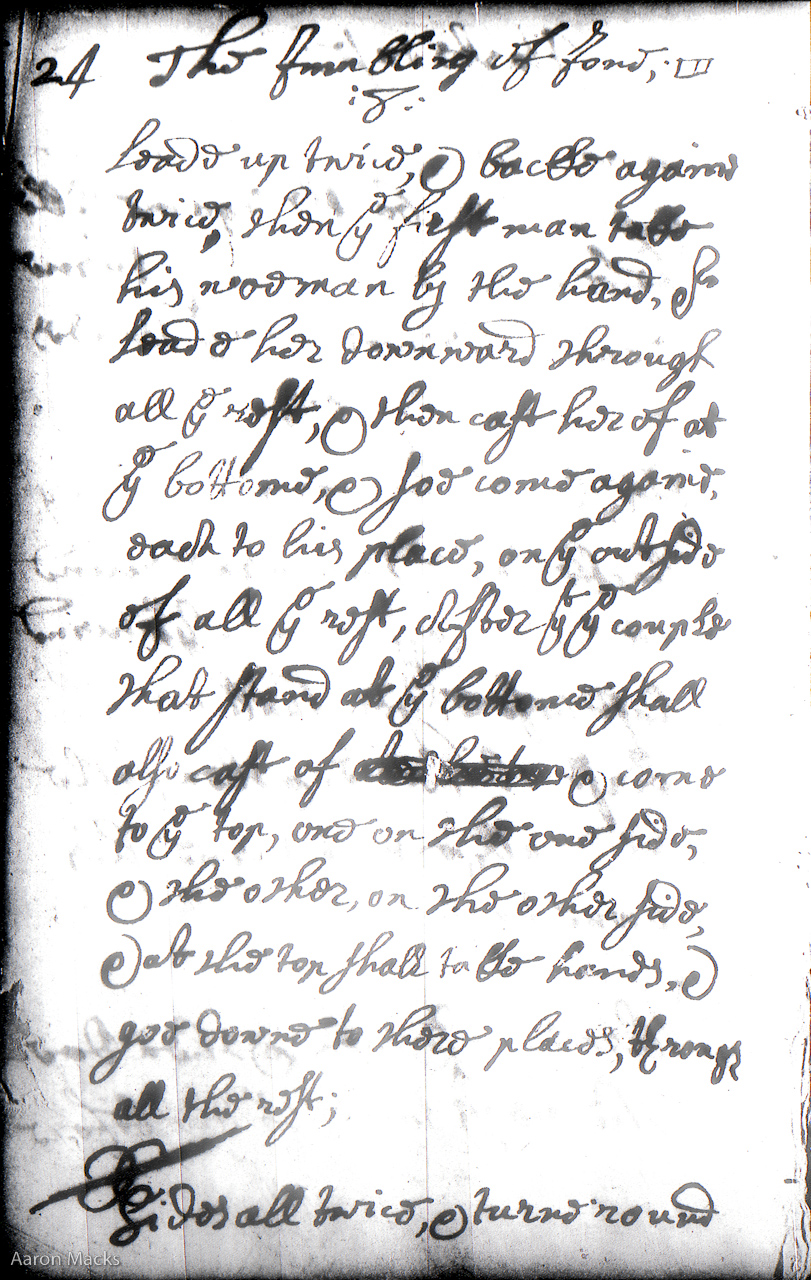 24 The fminbling of Jone, III
: 3 :
leade up twice, & backe againe
twice, then ye first man take
his woeman by the hand, &
leade her downward through
all ye rest, & then cast her of at
ye bottome, & soe come againe,
each to his place, on ye outside
of all ye rest, After yt ye couple
that stand at ye bottome shall
also cast of & come
to ye top, one on the one side,
& the other, on the other side,
& at the top shall take hands, &
goe downe to there places, through
all the rest;
Sides all twice, & turne round
Aaron Macks